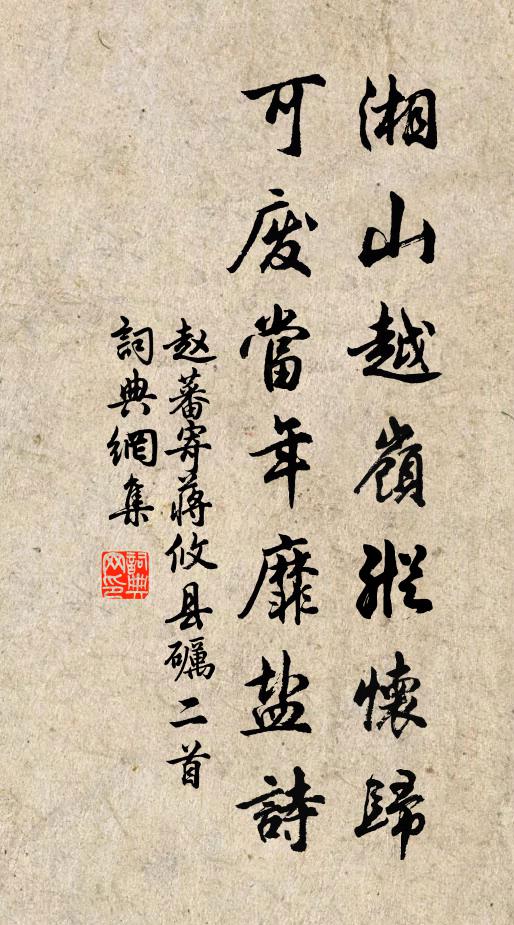 湘山越嶺縱懷歸
可废當年靡盐詩
赵蕃寄蔣攸县礪二首
詞典網集
詞典网印